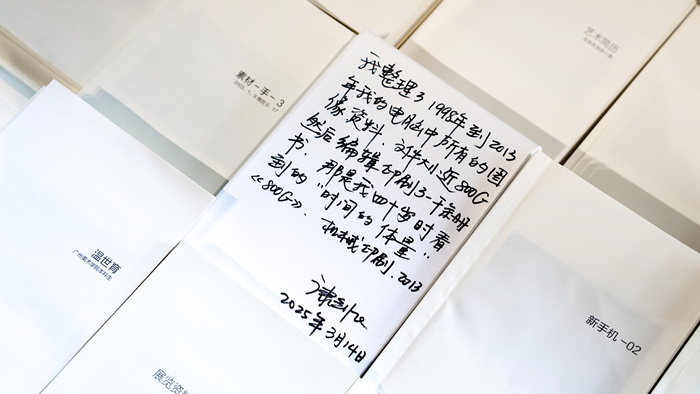 艺术简历
素材-手-3
我整理了1998年到2013
年我的电脑中所有的图
像资料，文件大小近800G
然后编辑印刷了一千余册
书，那是我四十岁时看
到的“时间的体量”
《800G》.机械印刷.2013
2025年3月14日
温世育
广州美术学院本科生
新手机-02
展览资